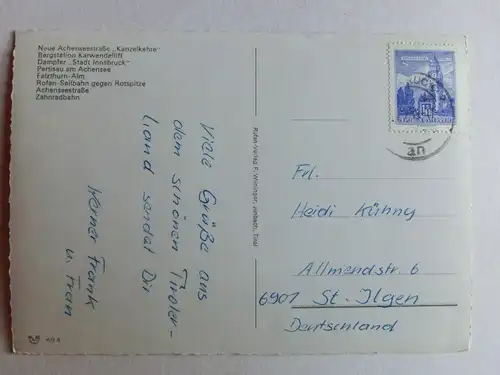 Neue Achenseestraße „Kanzelkehre"
Bergstation Karwendellift
Dampfer „Stadt Innsbruck"
Pertisau am Achensee
Falzthurn-Alm
Rofan-Seilbahn gegen Rotspitze
Achenseestraße
Zahnradbahn
Viele Grüße aus
dem schönen Tiroler-
Land sendet Dir
Werner Frank
u. Fran
Rofan-Verlag F. Wininger, Jenbach, Tirol
Frl.
Heidi Kühny
Allmendstraße 6
6901 St. Ilgen
Deutschland